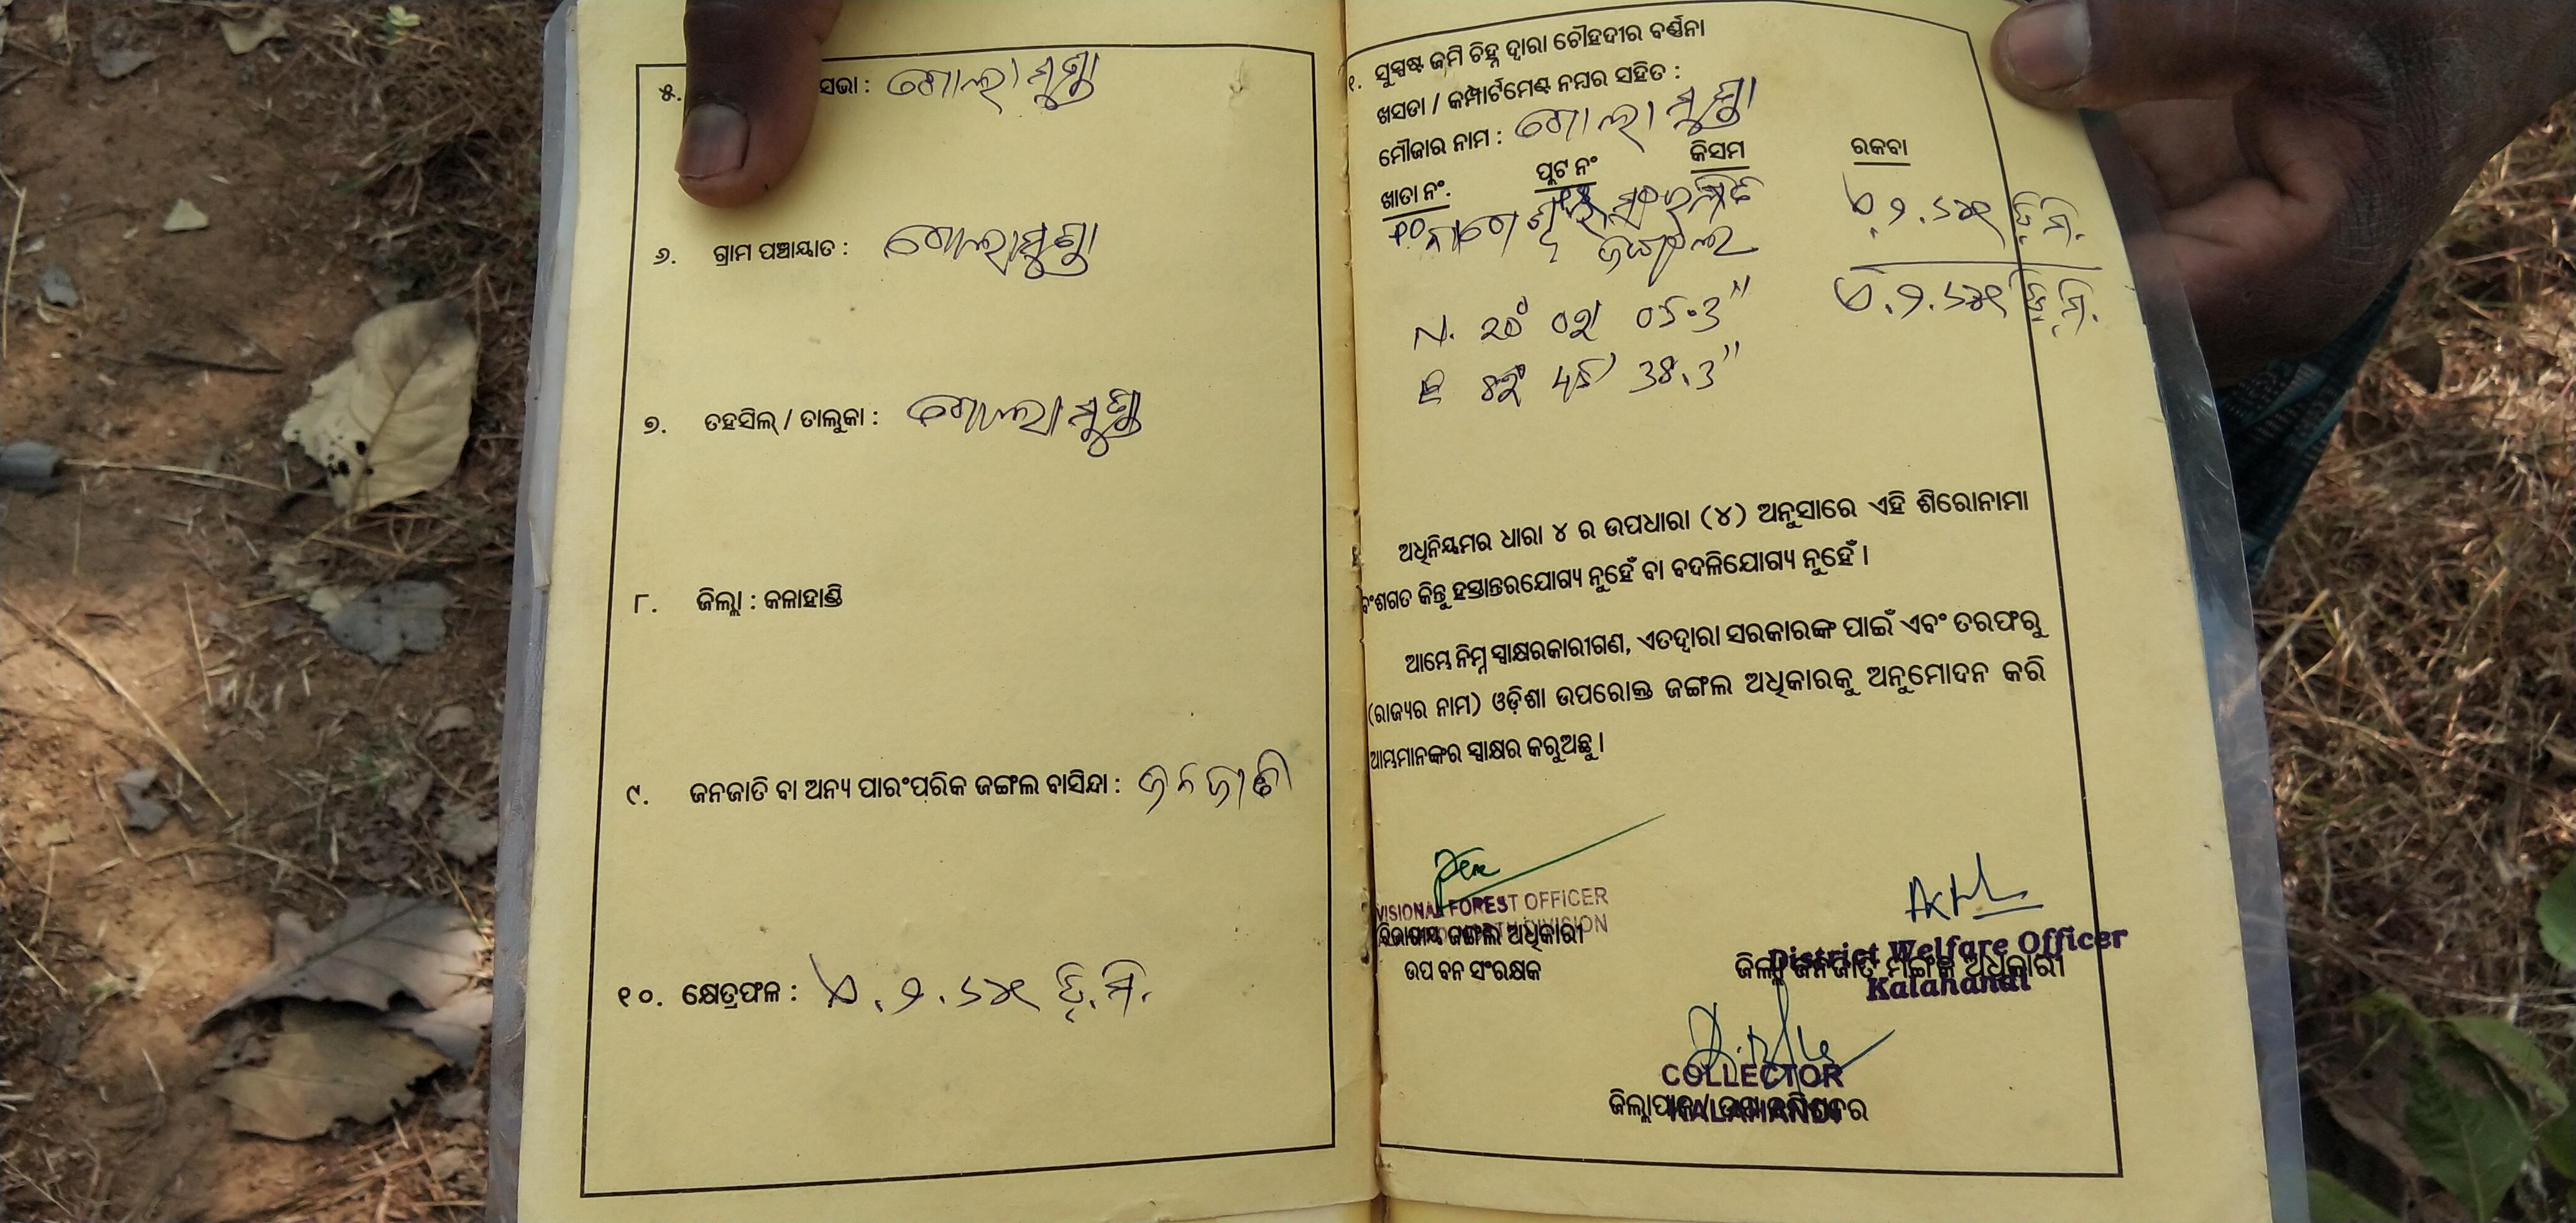 ୫. ସଭା : ଗୋଲାମୁଣ୍ଡା
୬. ଗ୍ରାମ ପଞ୍ଚାୟାତ : ଗୋଲାମୁଣ୍ଡା
୭. ତହସିଲ୍ / ତାଲୁକା : ଗୋଲାମୁଣ୍ଡା
୮. ଜିଲ୍ଲା : କଳାହାଣ୍ଡି
୯. ଜନଜାତି ବା ଅନ୍ୟ ପାରଂପରିକ ଜଙ୍ଗଲ ବାସିନ୍ଦା : ଜନଜାତି
୧୦. କ୍ଷେତ୍ରଫଳ : ଏ. ୨. ଡି.ମି.
୧. ସୁସ୍ପଷ୍ଟ ଜମି ଚିହ୍ନ ଦ୍ୱାରା ଚୌହଦୀର ବର୍ଣ୍ଣନା
ଖସଡା / କମ୍ପାର୍ଟମେଣ୍ଟ ନମ୍ବର ସହିତ :
ମୌଜାର ନାମ : ଗୋଲାମୁଣ୍ଡା
ଖାତା ନଂ. ପ୍ଲଟ ନଂ କିସମ ରକବା
ଏ.୨. ଡି.ମି.
ଜଙ୍ଗଲ
ଏ.୨. ଡି.ମି.
N. 20°
E 38.3"
ଅଧିନିୟମର ଧାରା ୪ ର ଉପଧାରା (୪) ଅନୁସାରେ ଏହି ଶିରୋନାମା
ବଂଶଗତ କିନ୍ତୁ ହସ୍ତାନ୍ତରଯୋଗ୍ୟ ନୁହେଁ ବା ବଦଳିଯୋଗ୍ୟ ନୁହେଁ ।
ଆମ୍ଭେ ନିମ୍ନ ସ୍ୱାକ୍ଷରକାରୀଗଣ, ଏତଦ୍ୱାରା ସରକାରଙ୍କ ପାଇଁ ଏବଂ ତରଫରୁ
(ରାଜ୍ୟର ନାମ) ଓଡ଼ିଶା ଉପରୋକ୍ତ ଜଙ୍ଗଲ ଅଧିକାରକୁ ଅନୁମୋଦନ କରି
ଆମ୍ଭମାନଙ୍କର ସ୍ୱାକ୍ଷର କରୁଅଛୁ ।
VISIONAL FOREST OFFICER
DIVISION
ବିଭାଗୀୟ ଜଙ୍ଗଲ ଅଧିକାରୀ
ଉପ ବନ ସଂରକ୍ଷକ
District Welfare Officer
ଜିଲ୍ଲା ଜନଜାତି ମଙ୍ଗଳ ଅଧିକାରୀ
Kalahandi
COLLECTOR
KALAHANDI